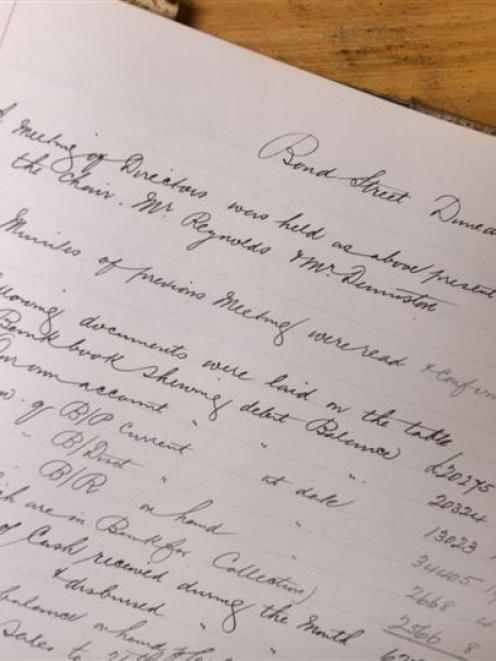 Bond Street Duned
A Meeting of Directors was held as above present
the Chair. Mr Reynolds & Mr Denniston
Minutes of previous Meeting were read & confirm
llowing documents were laid on the table
Bank book shewing debit Balance £20295
Our own account " " " 20324
of B/P Current at date 13023
" B/Disct " " 34405
B/R on hand " 2668
ch are in Bank for Collection) 2566 8
of Cash received during the Month
& disbursed "
balance on hand
Sales to